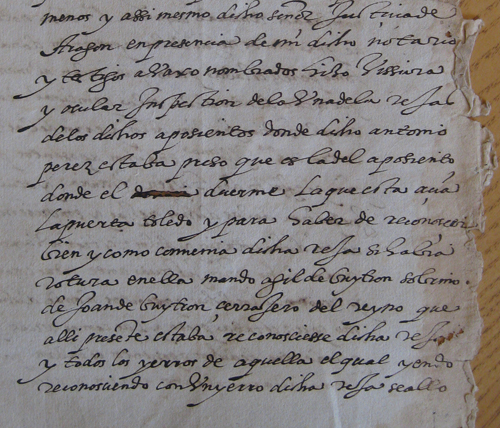 menos y assi mesmo dicho señor Justicia de
Aragon en presencia de mi dicho notario
y testigos abaxo nombrados hizo vissura
y ocular Inspection de la Una de la rexas
de los dichos aposientos donde dicho antonio
perez estaba preso que es la del aposiento
donde el duerme la que esta acia
la puerta toledo y para haber de reconoscer
bien y como convenia dicha rexa si habia
rotura en ella mando a gil de buytron sobrino
de Joan de buytron cerrajero del reyno que
alli presente estaba reconosciesse dicha rexa
y todos los yerros de aquella el qual yendo
reconosciendo con Un yerro dicha rexa se allo